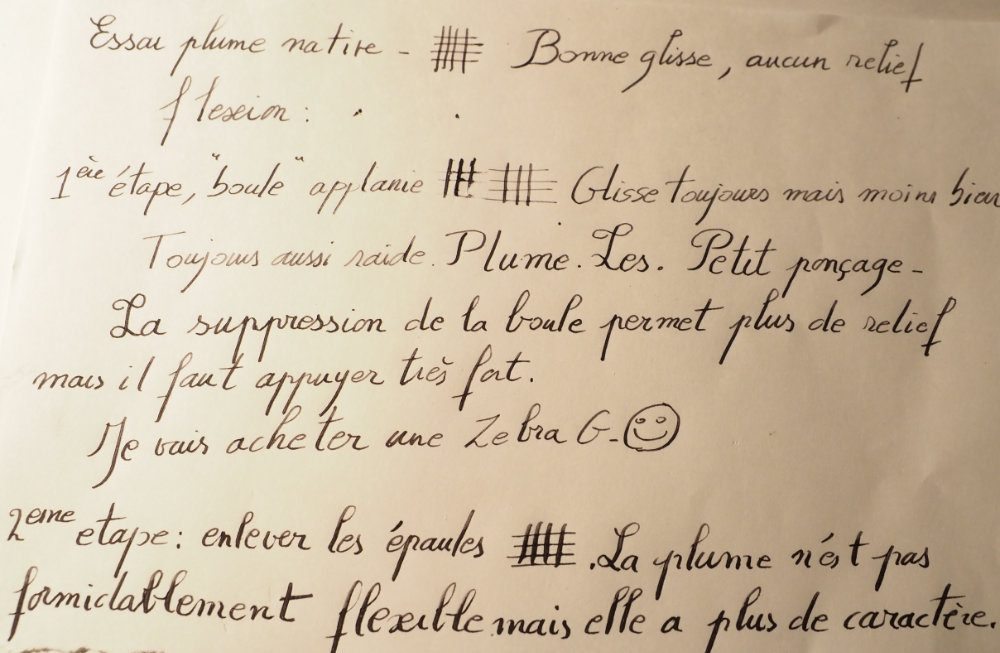 Essai plume native - Bonne glisse, aucun relief
flexion :
1ère étape, "boule" applanie Glisse toujours mais moins bien
Toujours aussi raide. Plume. Les. Petit ponçage -
La suppression de la boule permet plus de relief
mais il faut appuyer très fort.
Je vais acheter une Zebra G - ☺
2eme etape : enlever les épaules . La plume n'est pas
formidablement flexible mais elle a plus de caractère.